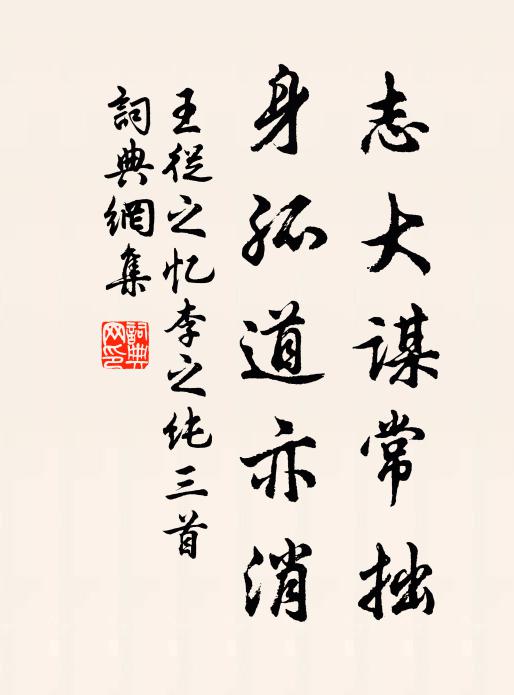 志大謀常拙
身孤道亦消
王從之忆李之纯三首
詞典網集
詞典網印